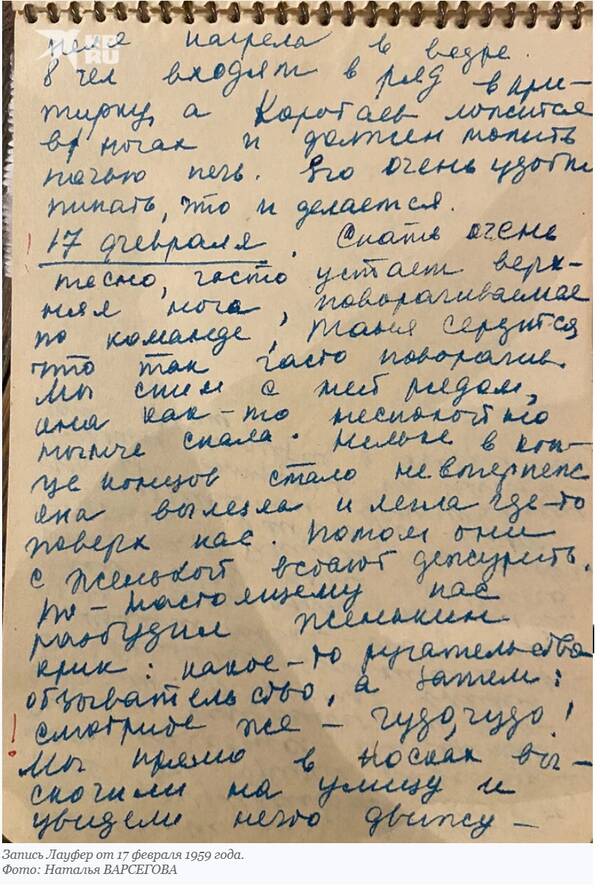 KP.RU
Неля нагрела в ведре.
8 чел входят в ряд в при-
тирку, а Коротаев ложится
в ногах и должен топить
ночью печь. Его очень удобно
пинать, что и делается.
17 февраля. Спать очень
тесно, часто устает верх-
няя нога, поворачиваемся
по команде, Таня сердится
что так часто поворачив.
Мы спим с ней рядом,
она как-то неспокойно
нынче спала. Нельке в кон-
це концов стало невтерпеж
она вылезла и легла где-то
поверх нас. Потом они
с Женькой встают дежурить.
По-настоящему нас
разбудил Женькин
крик: какое-то ругательство
обзывательство, а затем:
смотрите же - чудо, чудо!
Мы прямо в носках вы-
скочили на улицу и
увидели нечто движу-
Запись Лауфер от 17 февраля 1959 года.
Фото: Наталья ВАРСЕГОВА